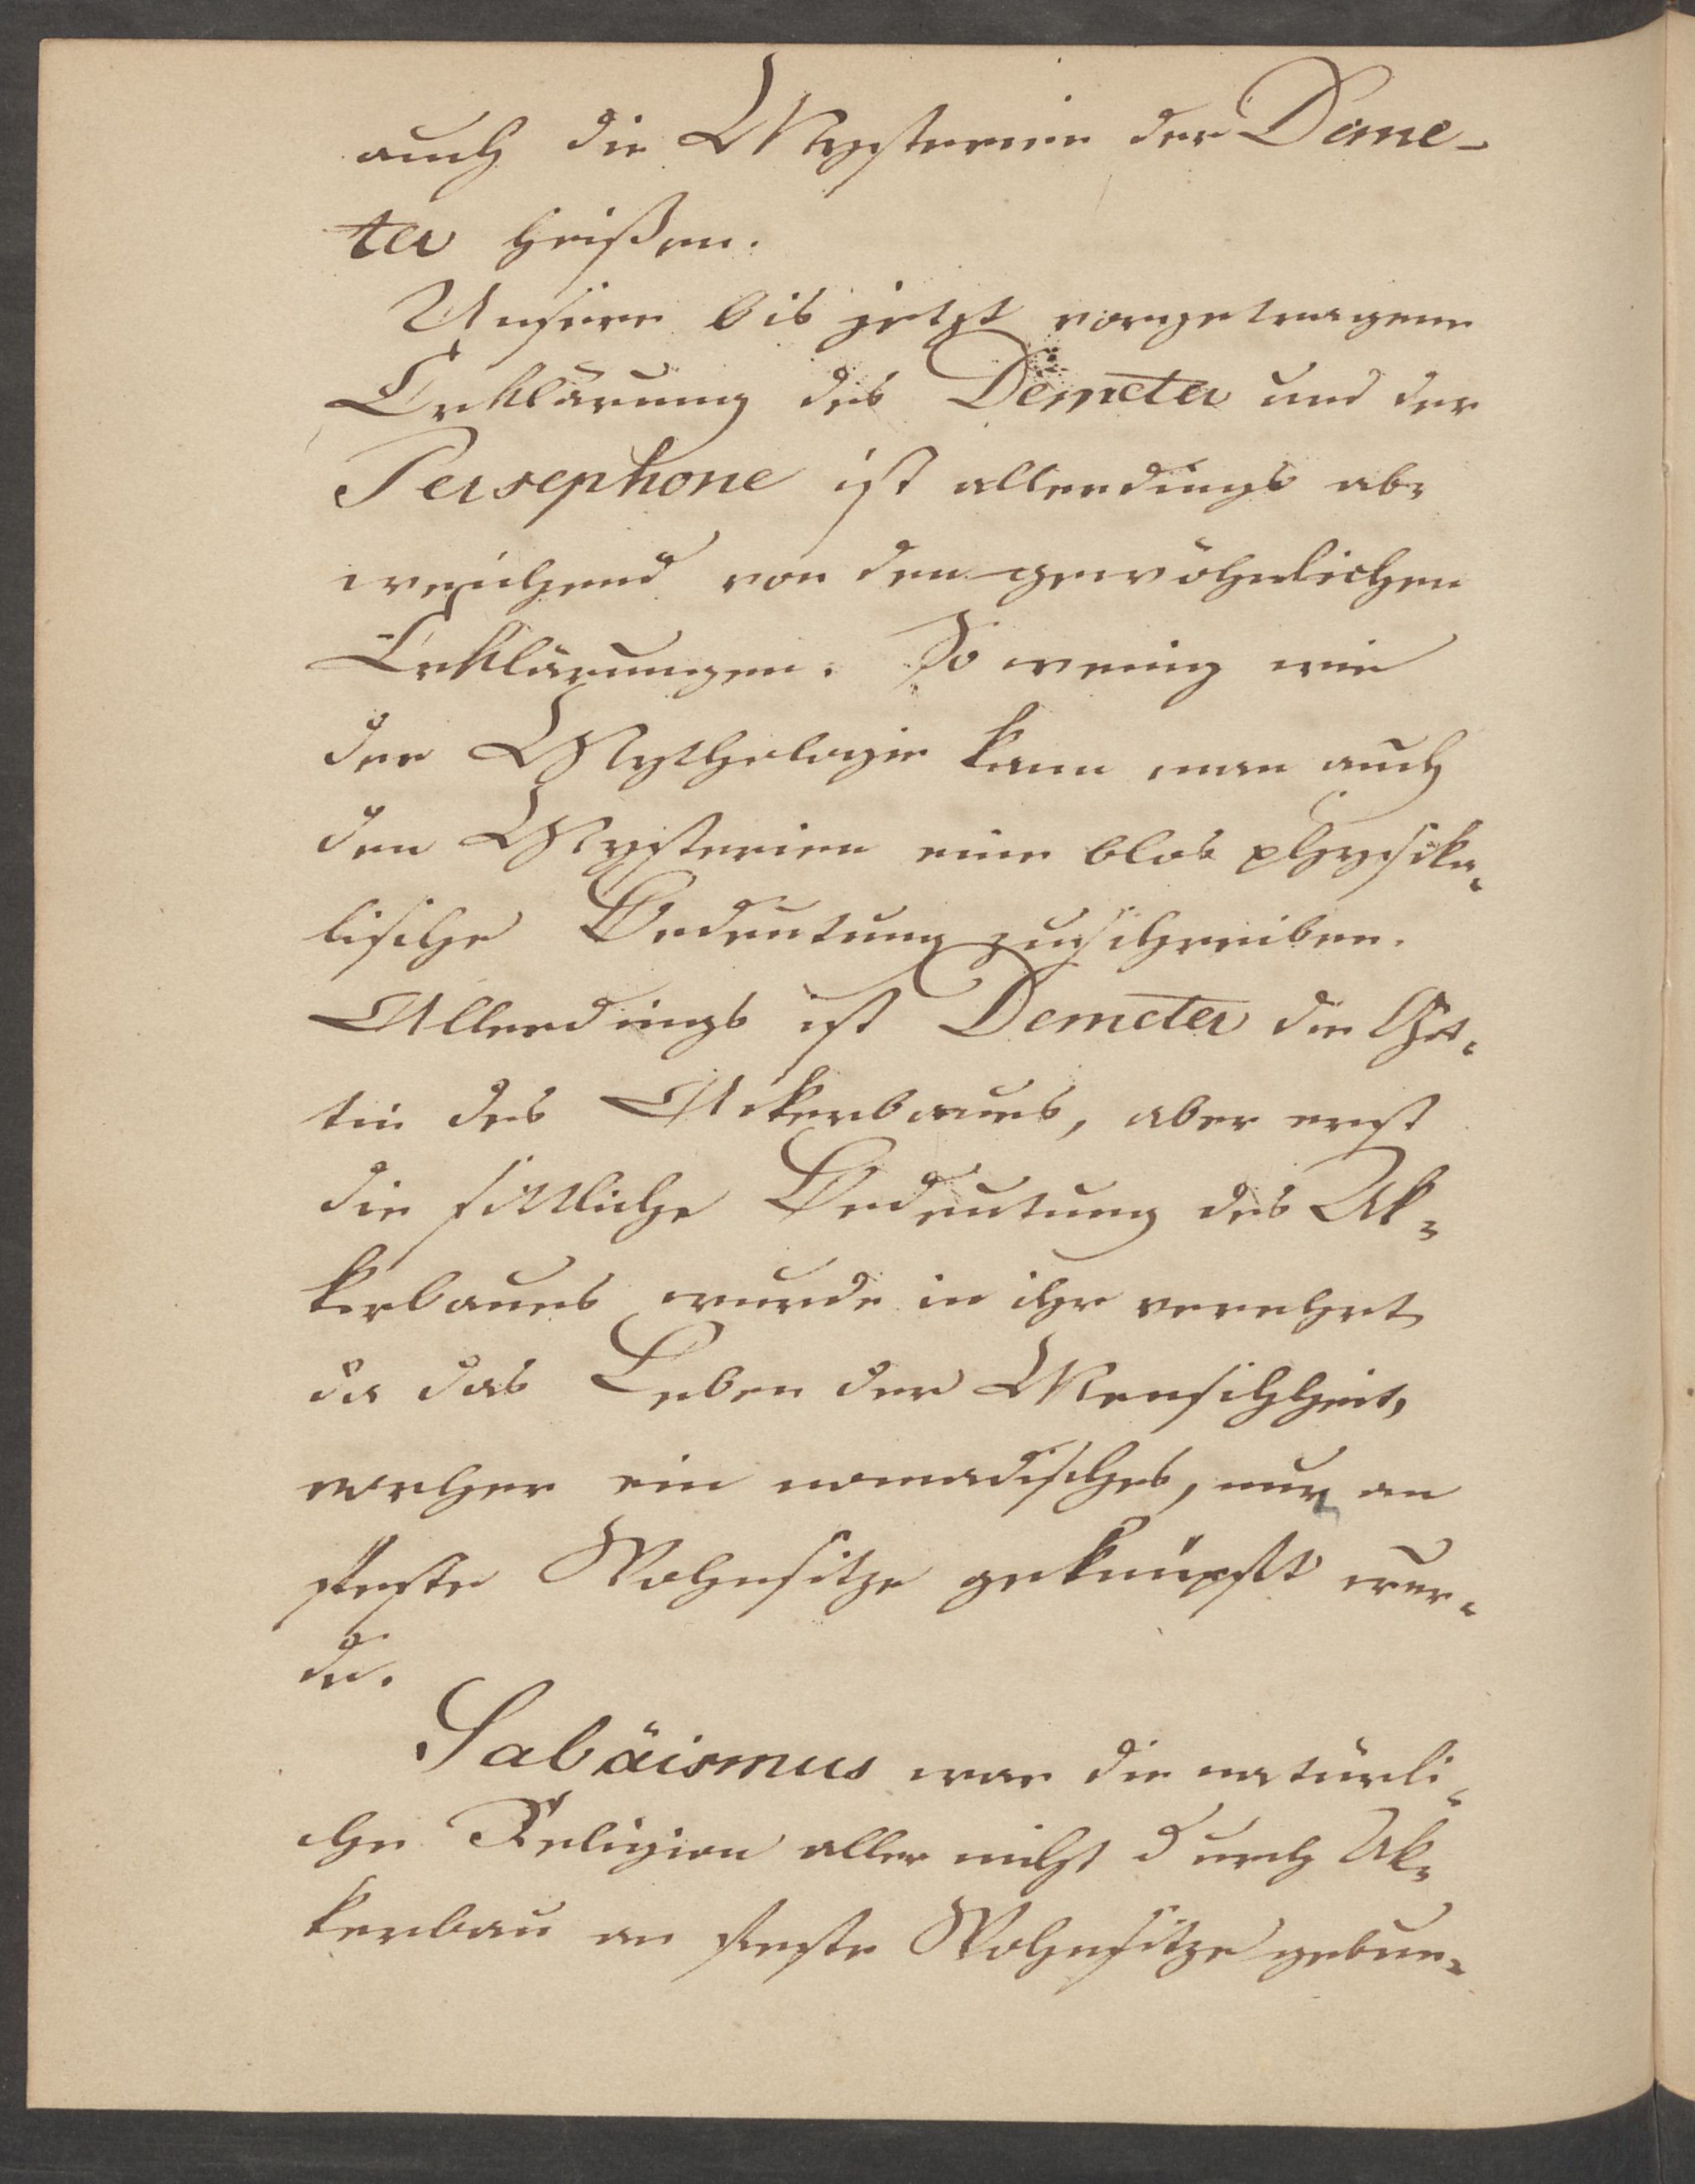 auch die Mysterien der Deme-
ter heißen.
Unsere bis jetzt vorgetragene
Erklärung des Demeter und der
Persephone ist allerdings ab-
weichend von den gewöhnlichen
Erklärungen. So wenig wie
der Mythologie kann man auch
den Mysterien eine blos physika-
lische Bedeutung zuschreiben.
Allerdings ist Demeter die Göt-
tin des Ackerbaues, aber erst
die sittliche Bedeutung des Ak-
kerbaues wurde in ihr verehrt
da das Leben der Menschheit,
vorher ein nomadisches, nur an
feste Wohnsitze geknüpft wur-
de.
Sabäismus war die natürli-
che Religion aller nicht durch Ak-
kerbau an feste Wohnsitze gebun-